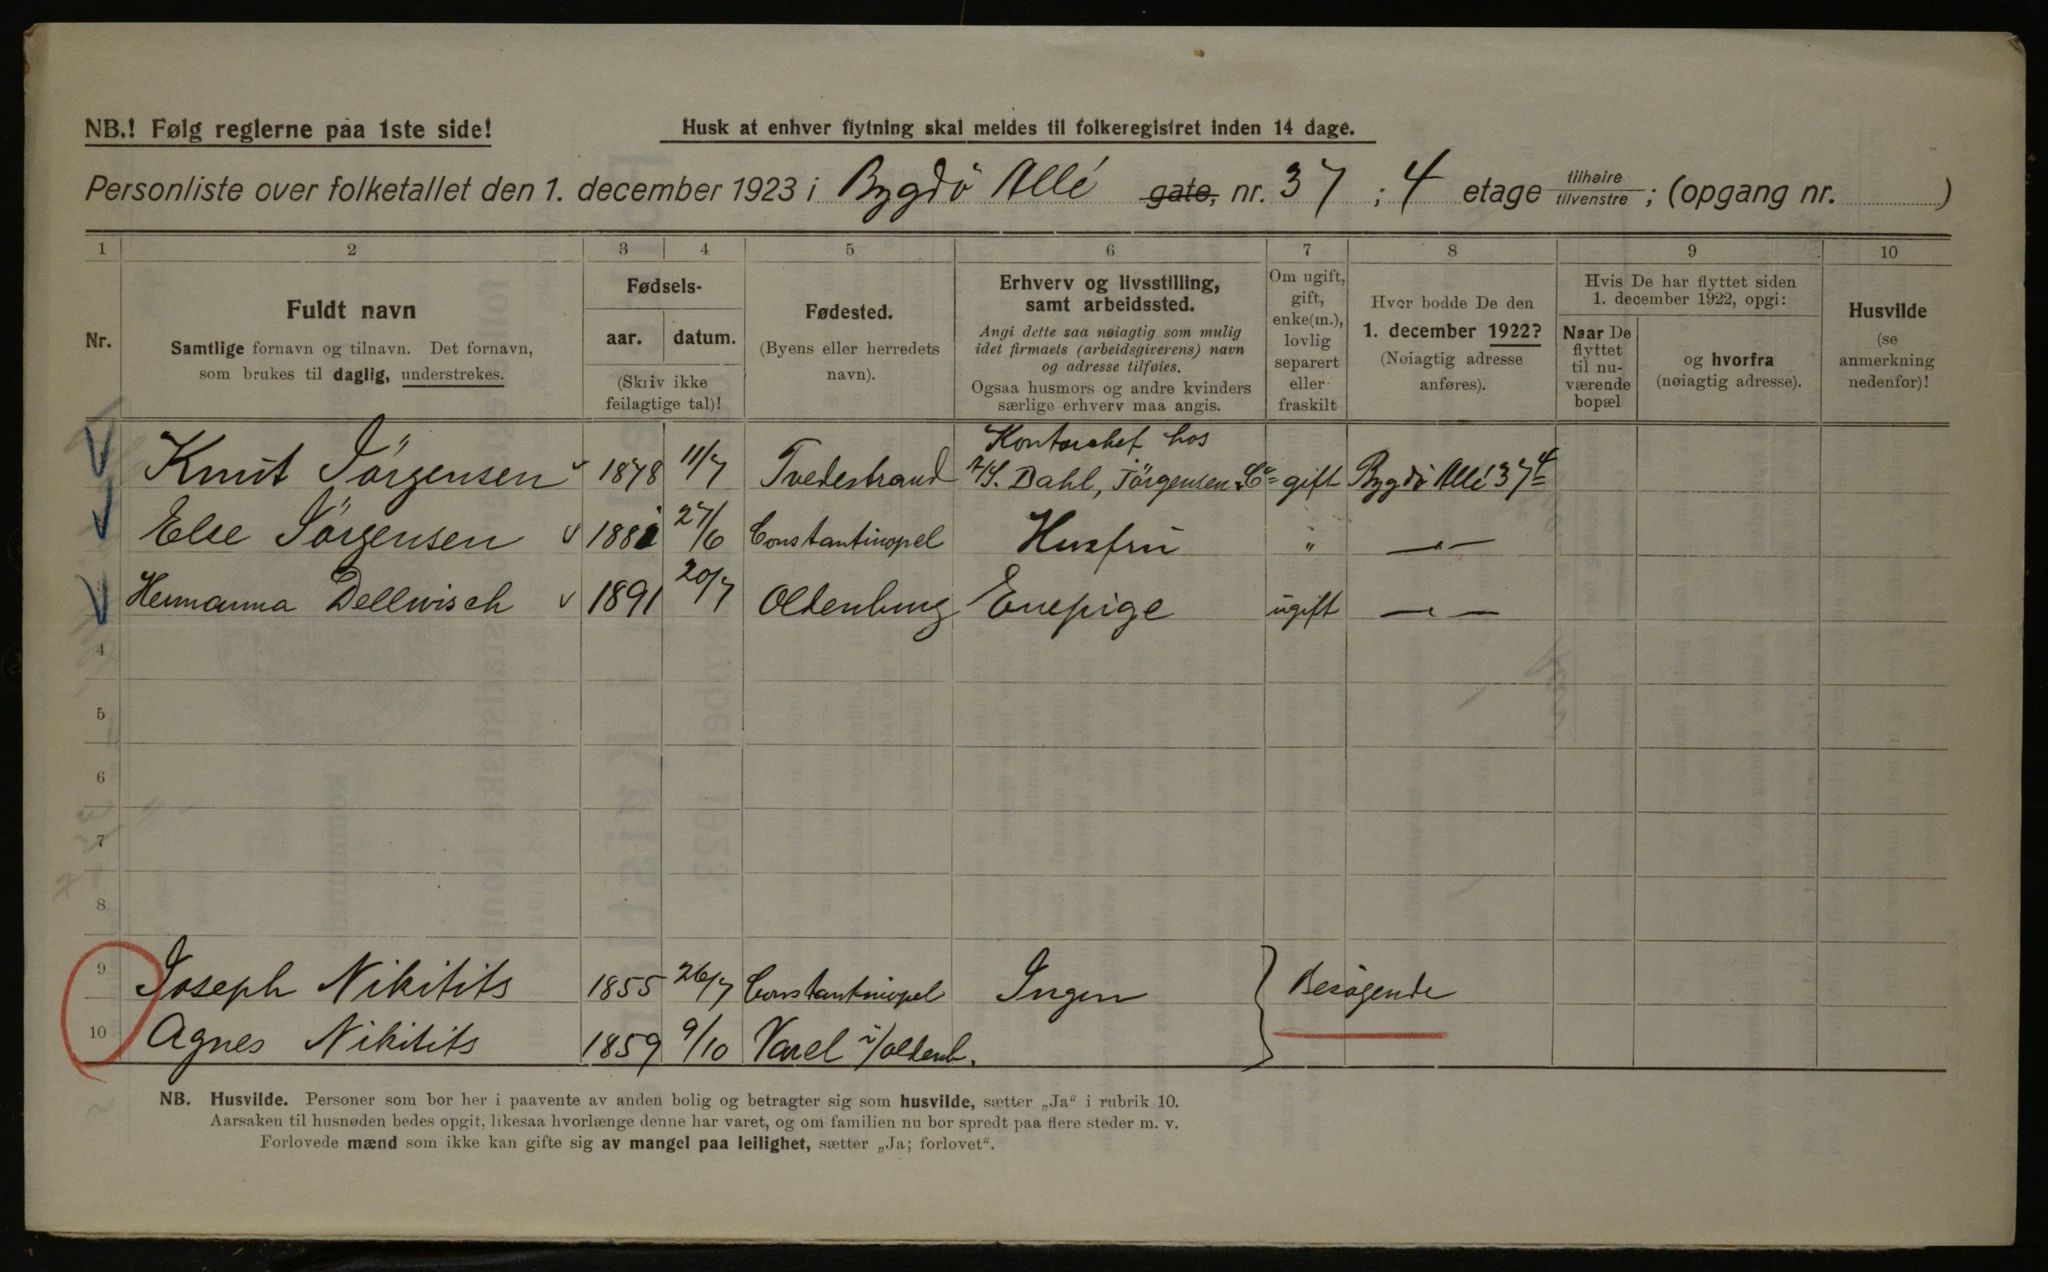 NB.! Følg reglerne paa 1ste side!
Husk at enhver flytning skal meldes til folkeregistret inden 14 dage.
Personliste over folketallet den 1. december 1923 i Bygdö Allé gate, nr. 37 ; 4 etage tilhøire tilvenstre ; (opgang nr. )
1 2 3 4 5 6 7 8 9 10
Nr.
Fuldt navn
Samtlige fornavn og tilnavn. Det fornavn,
som brukes til daglig, understrekes.
Fødsels-
aar. datum.
(Skriv ikke
feilagtige tal)!
Fødested.
(Byens eller herredets
navn).
Erhverv og livsstilling,
samt arbeidssted.
Angi dette saa nøiagtig som mulig
idet firmaets (arbeidsgiverens) navn
og adresse tilføies.
Ogsaa husmors og andre kvinders
særlige erhverv maa angis.
Om ugift,
gift,
enke(m.),
lovlig
separert
eller
fraskilt
Hvor bodde De den
1. december 1922?
(Nøiagtig adresse
anføres).
Hvis De har flyttet siden
1. december 1922, opgi:
Naar De
flyttet
til nu-
værende
bopæl
og hvorfra
(nøiagtig adresse).
Husvilde
(se
anmerkning
nedenfor)!
Kontorchef hos
Knut Jörgensen 1878 11/7 Tvedestrand A/S. Dahl, Jörgensen & Co gift Bygdö Allé 37 4
Else Jörgensen 1881 27/6 Constantinopel Husfru " — " —
Hermanna Dellwisch 1891 20/7 Oldenburg Enepige ugift — " —
4
5
6
7
8
9 Joseph Nikitits 1855 26/7 Constantinopel Ingen Besøgende
10 Agnes Nikitits 1859 9/10 Varel i/oldenb.
NB. Husvilde. Personer som bor her i paavente av anden bolig og betragter sig som husvilde, sætter „Ja" i rubrik 10.
Aarsaken til husnøden bedes opgit, likesaa hvorlænge denne har varet, og om familien nu bor spredt paa flere steder m. v.
Forlovede mænd som ikke kan gifte sig av mangel paa leilighet, sætter „Ja; forlovet".